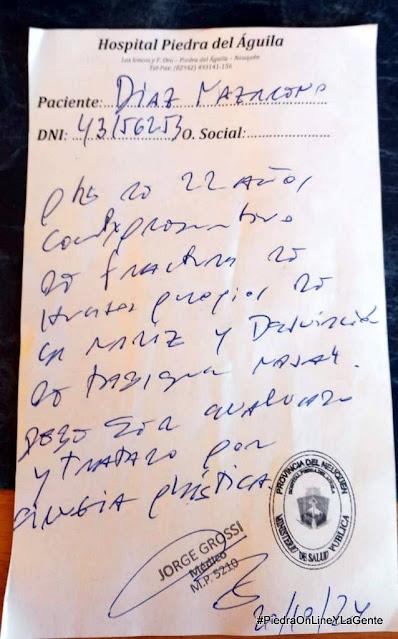 Hospital Piedra del Águila
Los Incas y P. Oro - Piedra del Águila - Neuquén
Tel-Fax: (02942) 493141-156
Paciente: DIAZ
DNI: 43156253 O. Social:
de 22 AÑOS
de fractura de
huesos propios de
la NARIZ y Desviación
de tabique NASAL.
evaluado
y tratado por
cirugia plástica.
PROVINCIA DEL NEUQUEN
MINISTERIO DE SALUD PUBLICA
JORGE GROSSI
Médico
M.P. 5210
/10/24
#PiedraOnLineYLaGente